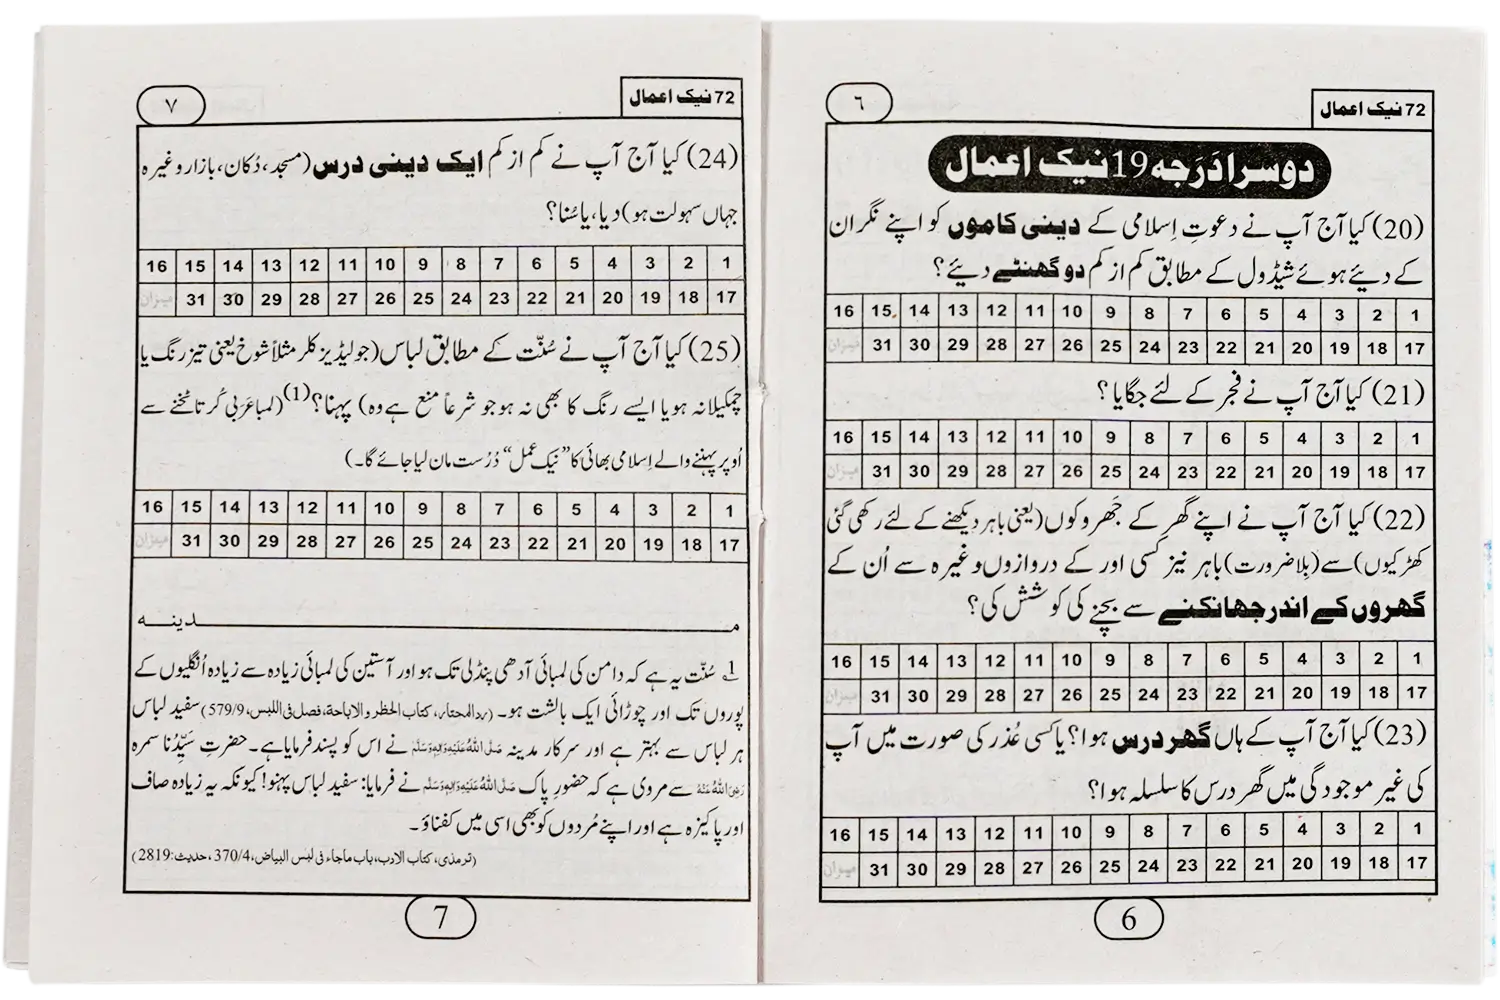 72 نیک اعمال
٦
دوسرا دَرَجہ 19 نیک اعمال
(20) کیا آج آپ نے دعوتِ اِسلامی کے دینی کاموں کو اپنے نگران
کے دیئے ہوئے شیڈول کے مطابق کم از کم دو گھنٹے دیئے؟
1 2 3 4 5 6 7 8 9 10 11 12 13 14 15 16
17 18 19 20 21 22 23 24 25 26 27 28 29 30 31 میزان
(21) کیا آج آپ نے فجر کے لئے جگایا؟
1 2 3 4 5 6 7 8 9 10 11 12 13 14 15 16
17 18 19 20 21 22 23 24 25 26 27 28 29 30 31 میزان
(22) کیا آج آپ نے اپنے گھر کے جَھروکوں (یعنی باہر دیکھنے کے لئے رکھی گئی
کھڑکیوں) سے (بِلاضرورت) باہر نیز کسی اور کے دروازوں وغیرہ سے اُن کے
گھروں کے اندر جھانکنے سے بچنے کی کوشش کی؟
1 2 3 4 5 6 7 8 9 10 11 12 13 14 15 16
17 18 19 20 21 22 23 24 25 26 27 28 29 30 31 میزان
(23) کیا آج آپ کے ہاں گھر درس ہوا؟ یا کسی عُذر کی صورت میں آپ
کی غیر موجودگی میں گھر درس کا سلسلہ ہوا؟
1 2 3 4 5 6 7 8 9 10 11 12 13 14 15 16
17 18 19 20 21 22 23 24 25 26 27 28 29 30 31 میزان
6
72 نیک اعمال
٧
(24) کیا آج آپ نے کم از کم ایک دینی درس (مسجد، دُکان، بازار وغیرہ
جہاں سہولت ہو) دیا، یا سُنا؟
1 2 3 4 5 6 7 8 9 10 11 12 13 14 15 16
17 18 19 20 21 22 23 24 25 26 27 28 29 30 31 میزان
(25) کیا آج آپ نے سُنّت کے مطابق لباس (جو لیڈیز کلر مثلاً شوخ یعنی تیز رنگ یا
چمکیلا نہ ہو یا ایسے رنگ کا بھی نہ ہو جو شرعاً منع ہے وہ) پہنا؟(1) (لمبا عَرَبی کُرتا ٹخنے سے
اُوپر پہننے والے اِسلامی بھائی کا ”نیک عمل“ دُرُست مان لیا جائے گا۔)
1 2 3 4 5 6 7 8 9 10 11 12 13 14 15 16
17 18 19 20 21 22 23 24 25 26 27 28 29 30 31 میزان
مــــدینــــہ
1 سُنّت یہ ہے کہ دامن کی لمبائی آدھی پنڈلی تک ہو اور آستین کی لمبائی زیادہ سے زیادہ اُنگلیوں کے
پوروں تک اور چوڑائی ایک بالشت ہو۔ (ردالمحتار، کتاب الحظر والاباحۃ، فصل فی اللبس، 579/9) سفید لباس
ہر لباس سے بہتر ہے اور سرکارِ مدینہ صَلَّی اللہُ عَلَیْہِ وَاٰلِہٖ وَسَلَّم نے اس کو پسند فرمایا ہے۔ حضرتِ سَیِّدُنا سمرہ
رَضِیَ اللہُ عَنْہُ سے مروی ہے کہ حضورِ پاک صَلَّی اللہُ عَلَیْہِ وَاٰلِہٖ وَسَلَّم نے فرمایا: سفید لباس پہنو! کیونکہ یہ زیادہ صاف
اور پاکیزہ ہے اور اپنے مُردوں کو بھی اسی میں کفناؤ۔
(ترمذی، کتاب الادب، باب ماجاء فی لبس البیاض، 370/4، حدیث: 2819)
7